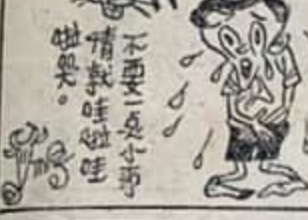 不要一点小事
情就哇啦哇
啦哭。